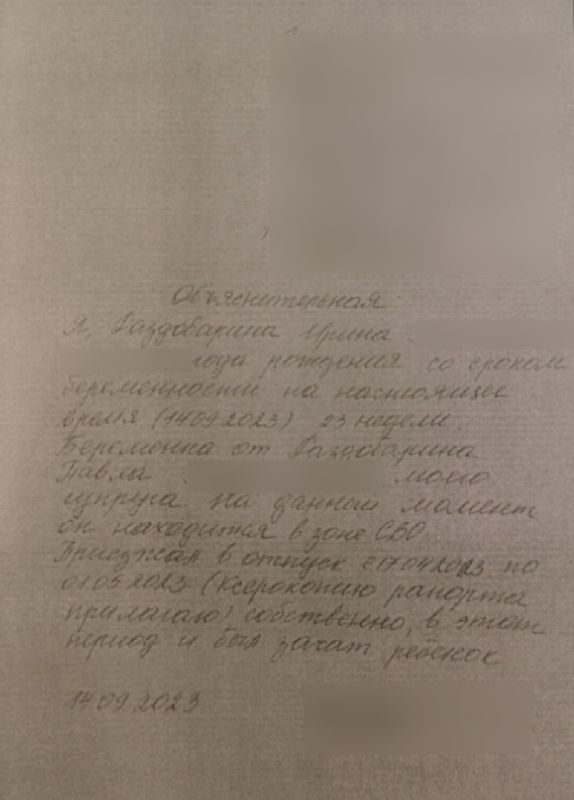 Объяснительная
Я, Раздобарина Ирина
года рождения со сроком
беременности на настоящее
время (14.09.2023) 23 недели.
Беременна от Раздобарина
Павла моего
супруга. На данный момент
он находится в зоне СВО
Приезжал в отпуск с 17.04.2023 по
01.05.2023 (Ксерокопию рапорта
прилагаю) собственно, в этот
период и был зачат ребёнок
14.09.2023